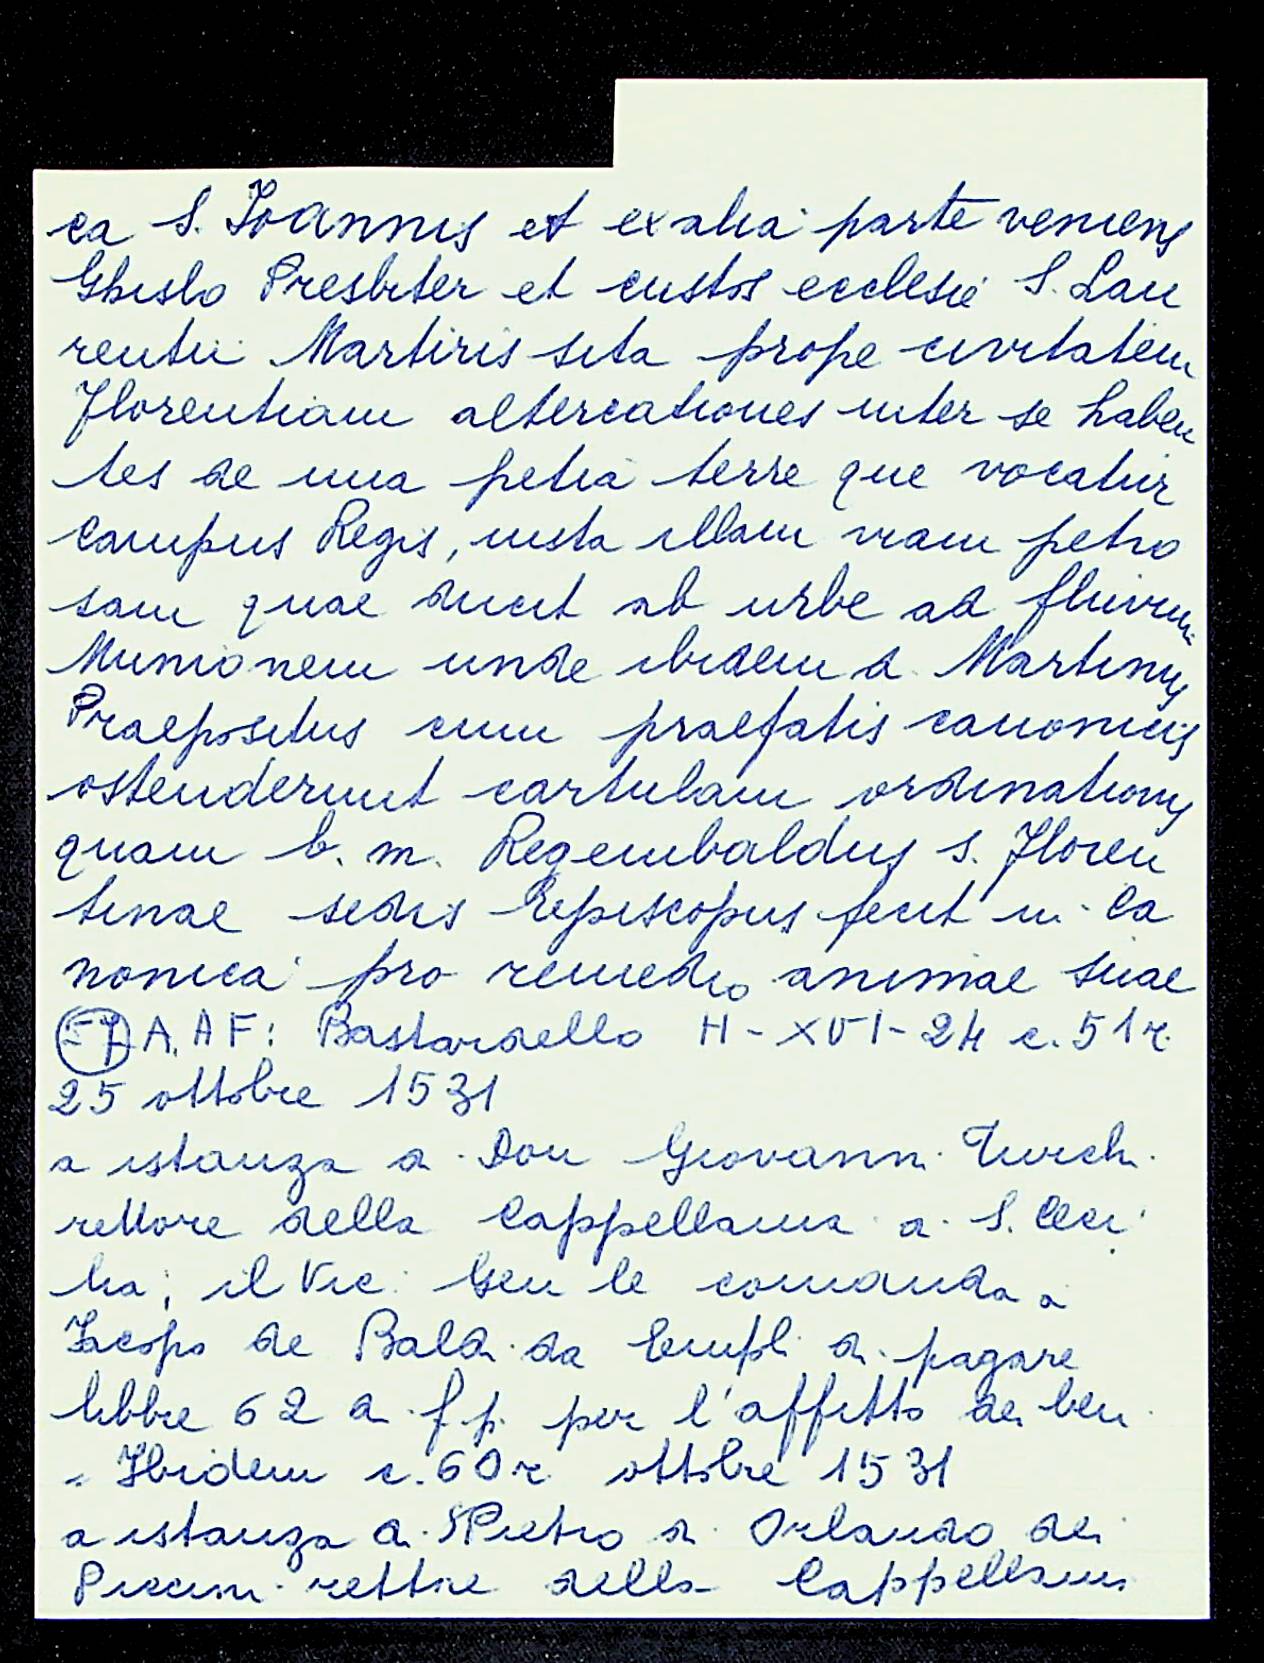 ca S. Joannis et ex alia parte veniens
Ghislo Presbiter et custos ecclesie S. Lau
rentii Martiris sita prope civitatem
Florentiam altercationes inter se haben
tes de una petia terre que vocatur
Campus Regis, iusta illam viam petro
sam quae ducit ab urbe ad fluvium
Munionem unde ibidem d. Martinus
Praepositus cum praefatis canonicis
ostenderunt cartulam ordinationis
quam b. m. Regembaldus s. Floren
tinae sedis Episcopus fecit in Ca
nonica pro remedio animae suae
A.A.F: Bastardello H-XVI-24 c. 51r.
25 ottobre 1531
a istanza di Don Giovanni Turchi
rettore della Cappellania di S. Ceci
lia; il Vic. Gen le comanda a
Jacopo de Baldi da Empoli di pagare
libbre 62 di f.p. per l'affitto dei beni
Ibidem c. 60r ottobre 1531
a istanza di Pietro di Orlando dei
Piccini rettore della Cappellania